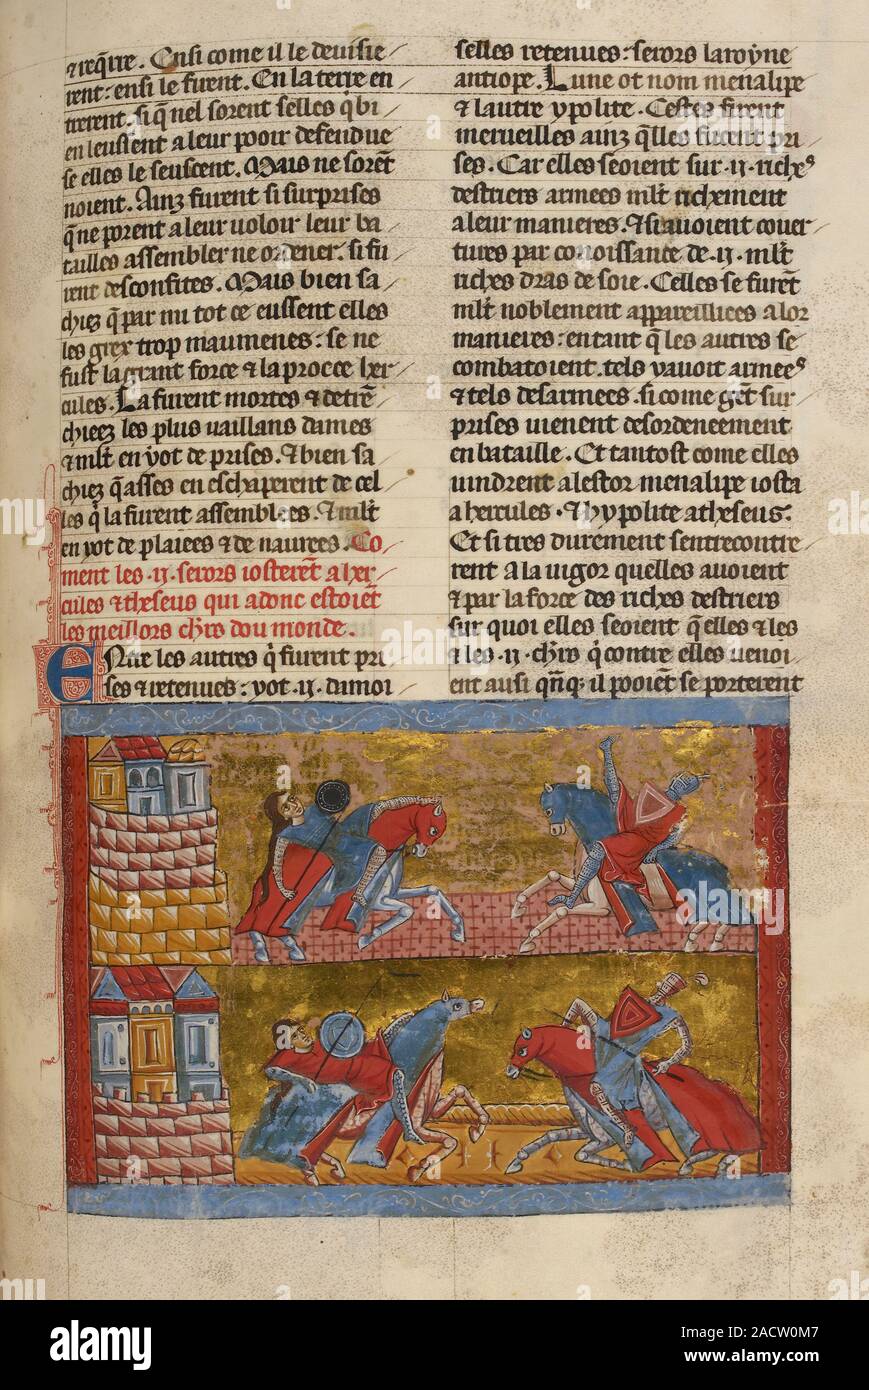 & req̃rre. Ensi come il le deuisie
rent: ensi le firent. En la terre en
trerent. si q̃ nel sorent selles q̇ bi
en leussent a leur pooir defendue
se elles le seuscent. Mais ne sorẽt
noient. Ainz furent si surprises
q̃ ne porent a leur uoloir leur ba
tailles assembler ne ordener. si fu
rent desconfites. Mais bien sa
chiez q̃ par nui tot ce eussent elles
les grex trop maumenes: se ne
fust la grant force & la procce her
cules. La furent mortes & detrẽ
chiees les plus uaillans dames
& mlt en yot de prises. & bien sa
chiez q̃ asses en eschaperent de cel
les q̇ la furent assemblees. & mlt
en yot de plaiees & de naurees. Co
ment les .ij. serors iosterẽt a her
cules & theseus qui adonc estoiẽt
les meillors chr̃s dou monde.
Entre les autres q̇ furent pri
ses & retenues: yot .ij. damoi
selles retenues: serors la royne
antiope. Lune ot nom menalipe
& lautre ypolite. Cestes firent
merueilles ainz q̃lles fucent pri
ses. Car elles seoient sur .ij. riches
destriers armees mlt richement
a leur manieres. & si auoient couer
tures par conoissance de .ij. mlt
riches dras de soie. Celles se furẽt
mlt noblement appareilliees a lor
manieres: entant q̃ les autres se
combatoient. tels yauoit armees
& tels desarmees. si come gẽt sur
prises uienent desordeneement
en bataille. Et tantost come elles
uindrent a lestor menalipe iosta
a hercules. & hypolite a theseus:
Et si tres durement sentrecontre
rent a la uigor quelles auoient
& par la force des riches destriers
sur quoi elles seoient q̃ elles & les
& les .ij. chr̃s q̇ contre elles uenoi
ent ausi q̃nq; il pooiẽt se porterent
alamy
Image ID: 2ACW0M7
www.alamy.com